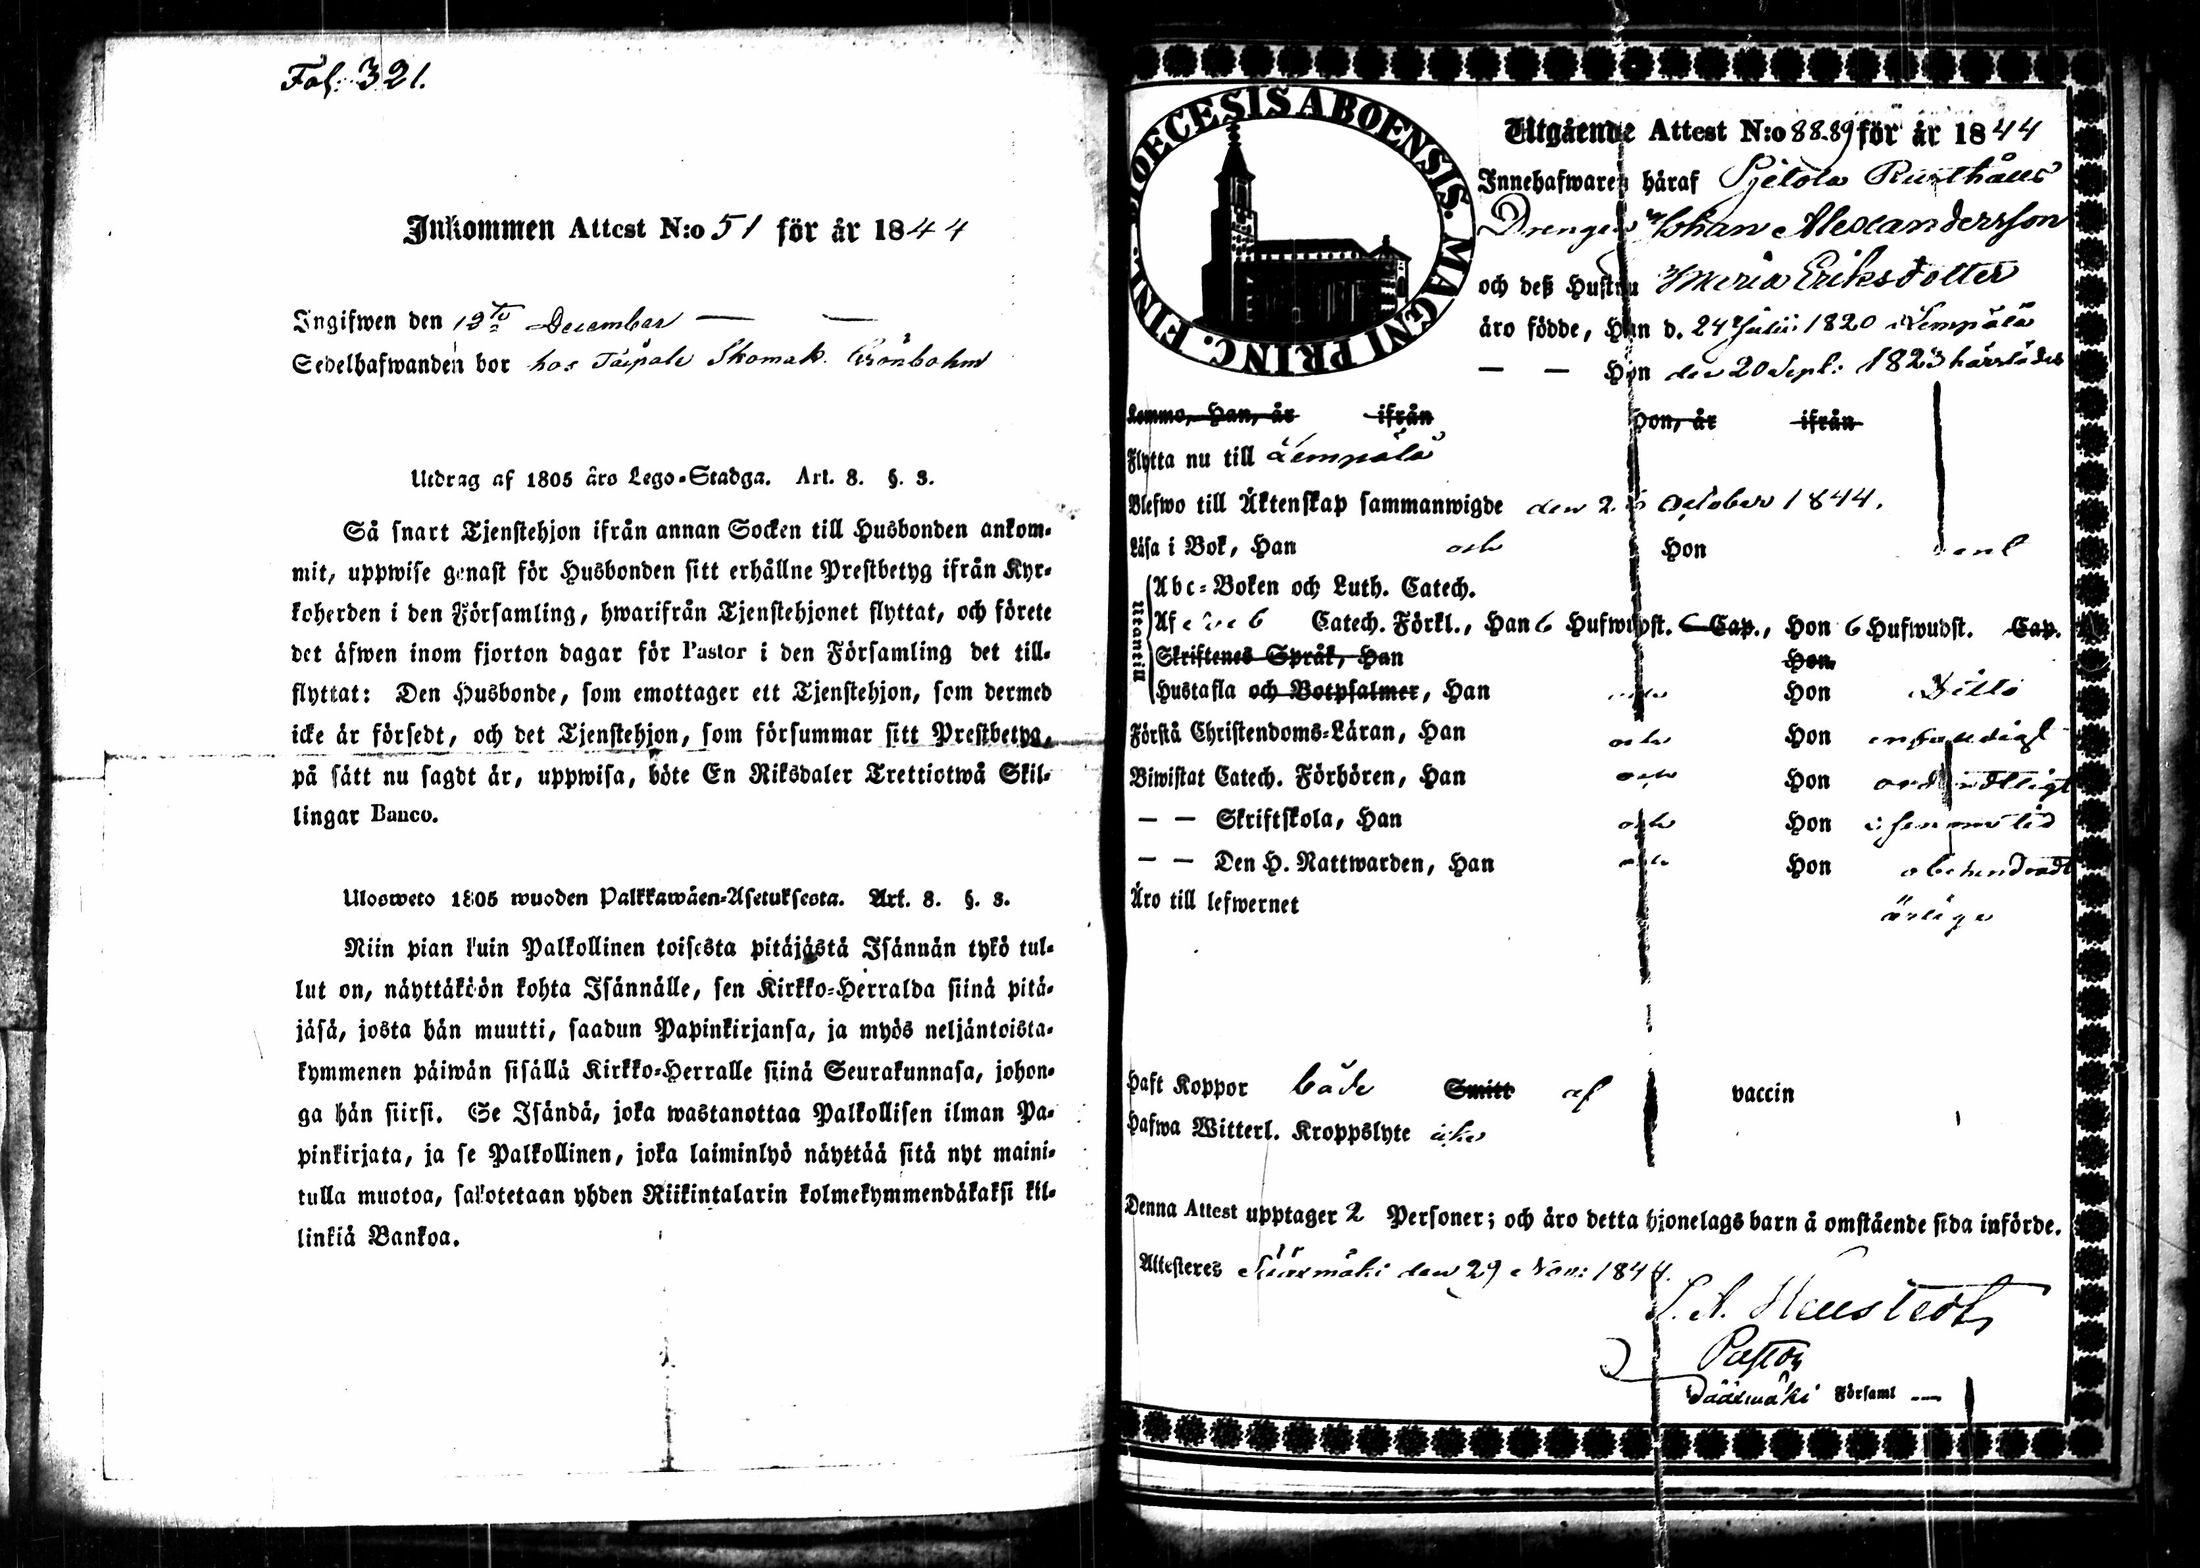 Fol: 321.
Inkommen Attest N:o 51 för år 1844
Ingifwen den 13de December
Sedelhafwanden bor hos Taipale Skomak. Grönbohm
Utdrag af 1805 års Lego-Stadga. Art. 8. §. 3.
Så snart Tjenstehjon ifrån annan Socken till Husbonden ankom-
mit, uppwise genast för Husbonden sitt erhållne Prestbetyg ifrån Kyr-
koherden i den Församling, hwarifrån Tjenstehjonet flyttat, och förete
det äfwen inom fjorton dagar för Pastor i den Församling det till-
flyttat: Den Husbonde, som emottager ett Tjenstehjon, som dermed
icke är försedt, och det Tjenstehjon, som försummar sitt Prestbetyg,
på sätt nu sagdt är, uppwisa, böte En Riksdaler Trettiotwå Skil-
lingar Banco.
Ulosweto 1805 wuoden Palkkawäen-Asetuksesta. Art. 8. §. 3.
Niin pian kuin Palkollinen toisesta pitäjästä Isännän tykö tul-
lut on, näyttäköön kohta Isännälle, sen Kirkko-Herralda siinä pitä-
jäsä, josta hän muutti, saadun Papinkirjansa, ja myös neljäntoista-
kymmenen päiwän sisällä Kirkko-Herralle siinä Seurakunnasa, johon-
ga hän siirsi. Se Isändä, joka wastanottaa Palkollisen ilman Pa-
pinkirjata, ja se Palkollinen, joka laiminlyö näyttää sitä nyt maini-
tulla muotoa, sakotetaan yhden Riikintalarin kolmekymmendäkaksi kil-
linkiä Bankoa.
DIOECESIS ABOENSIS. MAGNI PRINC. FINL.
Utgående Attest N:o 88.89 för år 1844
Innehafwaren häraf
Drengen Johan Alexandersson
och deß Hustru Maria Eriksdotter
äro födde, Han d. 24 Julii 1820 i Lempälä
— — Hon den 20 Sept: 1823 härstädes
Kommo, Han, år ifrån Hon, år ifrån
Flytta nu till Lempälä
Blefwo till Äktenskap sammanwigde den October 1844.
Läsa i Bok, Han och Hon
Utantill
Abc-Boken och Luth. Catech.
Af Catech. Förkl., Han 6 Hufwudst. Cap., Hon 6 Hufwudst. Cap.
Skriftenes Språk, Han Hon
Hustafla och Botpsalmer, Han och Hon Ditto
Förstå Christendoms-Läran, Han och Hon enfaldigt
Biwistat Catech. Förhören, Han och Hon ordentligt
— — Skriftskola, Han och Hon i sinom tid
— — Den H. Nattwarden, Han och Hon obehindradt
Äro till lefwernet ärliga
Haft Koppor både Smitt af vaccin
Hafwa Witterl. Kroppslyte icke
Denna Attest upptager 2 Personer; och äro detta hjonelags barn å omstående sida införde.
Attesteres Sääxmäki den 29 Nov: 1844.
Pastor
Sääxmäki Församl —